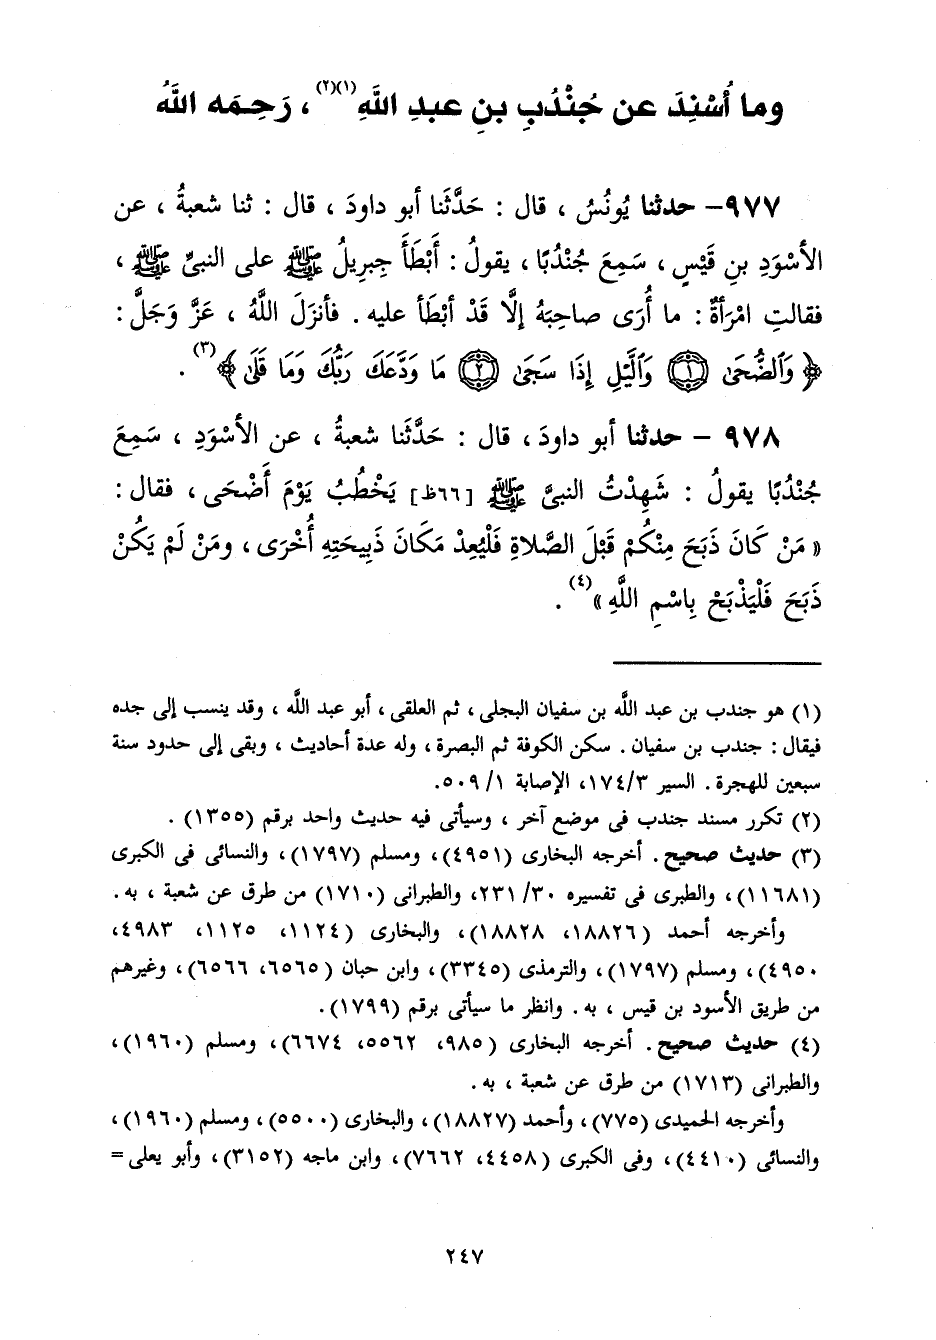 وما أُسْنِدَ عن جُنْدُبِ بنِ عبدِ اللَّهِ(١)(٢) ، رَحِمَه اللَّهُ
٩٧٧- حدثنا يُونُسُ ، قال : حَدَّثَنا أبو داودَ ، قال : ثنا شعبةُ ، عن
الأسْوَدِ بنِ قَيْسٍ ، سَمِعَ جُنْدُبًا ، يقولُ : أَبْطَأَ جِبرِيلُ ﷺ على النبىِّ ﷺ ،
فقالتِ امْرأةٌ : ما أُرَى صاحِبَهُ إلَّا قَدْ أبْطَأ عليه . فأنزَلَ اللَّهُ ، عَزَّ وَجَلَّ :
﴿ وَٱلضُّحَىٰ ۝١ وَٱلَّيْلِ إِذَا سَجَىٰ ۝٢ مَا وَدَّعَكَ رَبُّكَ وَمَا قَلَىٰ ﴾(٣) .
٩٧٨ - حدثنا أبو داودَ ، قال : حَدَّثَنا شعبةُ ، عن الأسْوَدِ ، سَمِعَ
جُنْدُبًا يقولُ : شَهِدْتُ النبىَّ ﷺ [٦٦ظ] يَخْطُبُ يَوْمَ أَضْحَى ، فقال :
« مَنْ كَانَ ذَبَحَ مِنْكُمْ قَبْلَ الصَّلاةِ فَلْيُعِدْ مَكَانَ ذَبِيحَتِهِ أُخْرَى ، ومَنْ لَمْ يَكُنْ
ذَبَحَ فَلْيَذْبَحْ بِاسْمِ اللَّهِ »(٤) .
(١) هو جندب بن عبد اللَّه بن سفيان البجلى ، ثم العلقى ، أبو عبد اللَّه ، وقد ينسب إلى جده
فيقال : جندب بن سفيان . سكن الكوفة ثم البصرة ، وله عدة أحاديث ، وبقى إلى حدود سنة
سبعين للهجرة . السير ٣/ ١٧٤، الإصابة ١/ ٥٠٩.
(٢) تكرر مسند جندب فى موضع آخر ، وسيأتى فيه حديث واحد برقم (١٣٥٥) .
(٣) حديث صحيح . أخرجه البخارى (٤٩٥١)، ومسلم (١٧٩٧)، والنسائى فى الكبرى
(١١٦٨١)، والطبرى فى تفسيره ٣٠/ ٢٣١، والطبرانى (١٧١٠) من طرق عن شعبة ، به .
وأخرجه أحمد (١٨٨٢٦، ١٨٨٢٨)، والبخارى (١١٢٤، ١١٢٥، ٤٩٨٣،
٤٩٥٠)، ومسلم (١٧٩٧)، والترمذى (٣٣٤٥)، وابن حبان (٦٥٦٥، ٦٥٦٦)، وغيرهم
من طريق الأسود بن قيس ، به . وانظر ما سيأتى برقم (١٧٩٩).
(٤) حديث صحيح . أخرجه البخارى (٩٨٥، ٥٥٦٢، ٦٦٧٤)، ومسلم (١٩٦٠)،
والطبرانى (١٧١٣) من طرق عن شعبة ، به .
وأخرجه الحميدى (٧٧٥)، وأحمد (١٨٨٢٧)، والبخارى (٥٥٠٠)، ومسلم (١٩٦٠)،
والنسائى (٤٤١٠)، وفى الكبرى (٤٤٥٨، ٧٦٦٢)، وابن ماجه (٣١٥٢)، وأبو يعلى =
٢٤٧